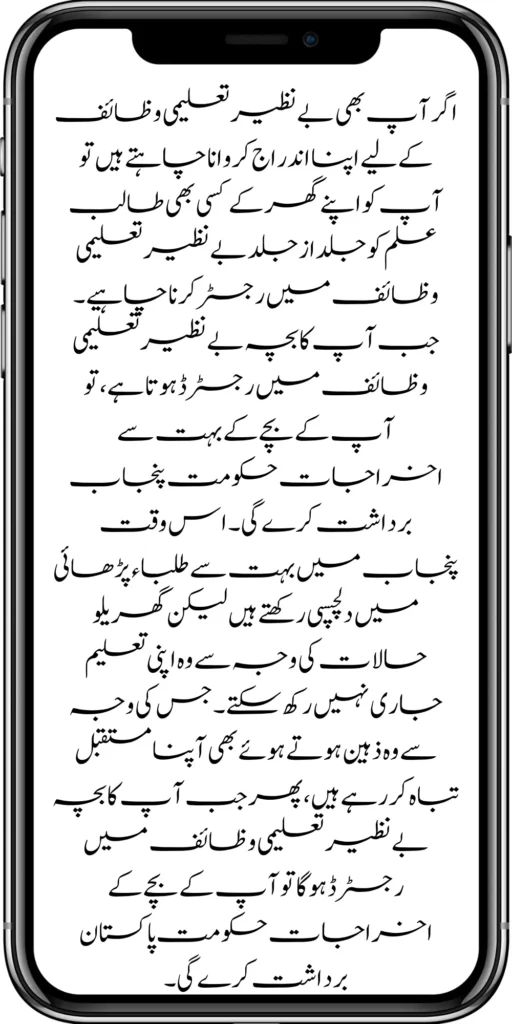 اگر آپ بھی بے نظیر تعلیمی وظائف
کے لیے اپنا اندراج کروانا چاہتے ہیں تو
آپ کو اپنے گھر کے کسی بھی طالب
علم کو جلد از جلد بے نظیر تعلیمی
وظائف میں رجسٹر کرنا چاہیے۔
جب آپ کا بچہ بے نظیر تعلیمی
وظائف میں رجسٹرڈ ہوتا ہے، تو
آپ کے بچے کے بہت سے
اخراجات حکومت پنجاب
برداشت کرے گی۔ اس وقت
پنجاب میں بہت سے طلباء پڑھائی
میں دلچسپی رکھتے ہیں لیکن گھریلو
حالات کی وجہ سے وہ اپنی تعلیم
جاری نہیں رکھ سکتے۔ جس کی وجہ
سے وہ ذہین ہوتے ہوئے بھی آپنا مستقبل
تباہ کر رہے ہیں، پھر جب آپ کا بچہ
بے نظیر تعلیمی وظائف میں
رجسٹرڈ ہوگا تو آپ کے بچے کے
اخراجات حکومت پاکستان
برداشت کرے گی۔